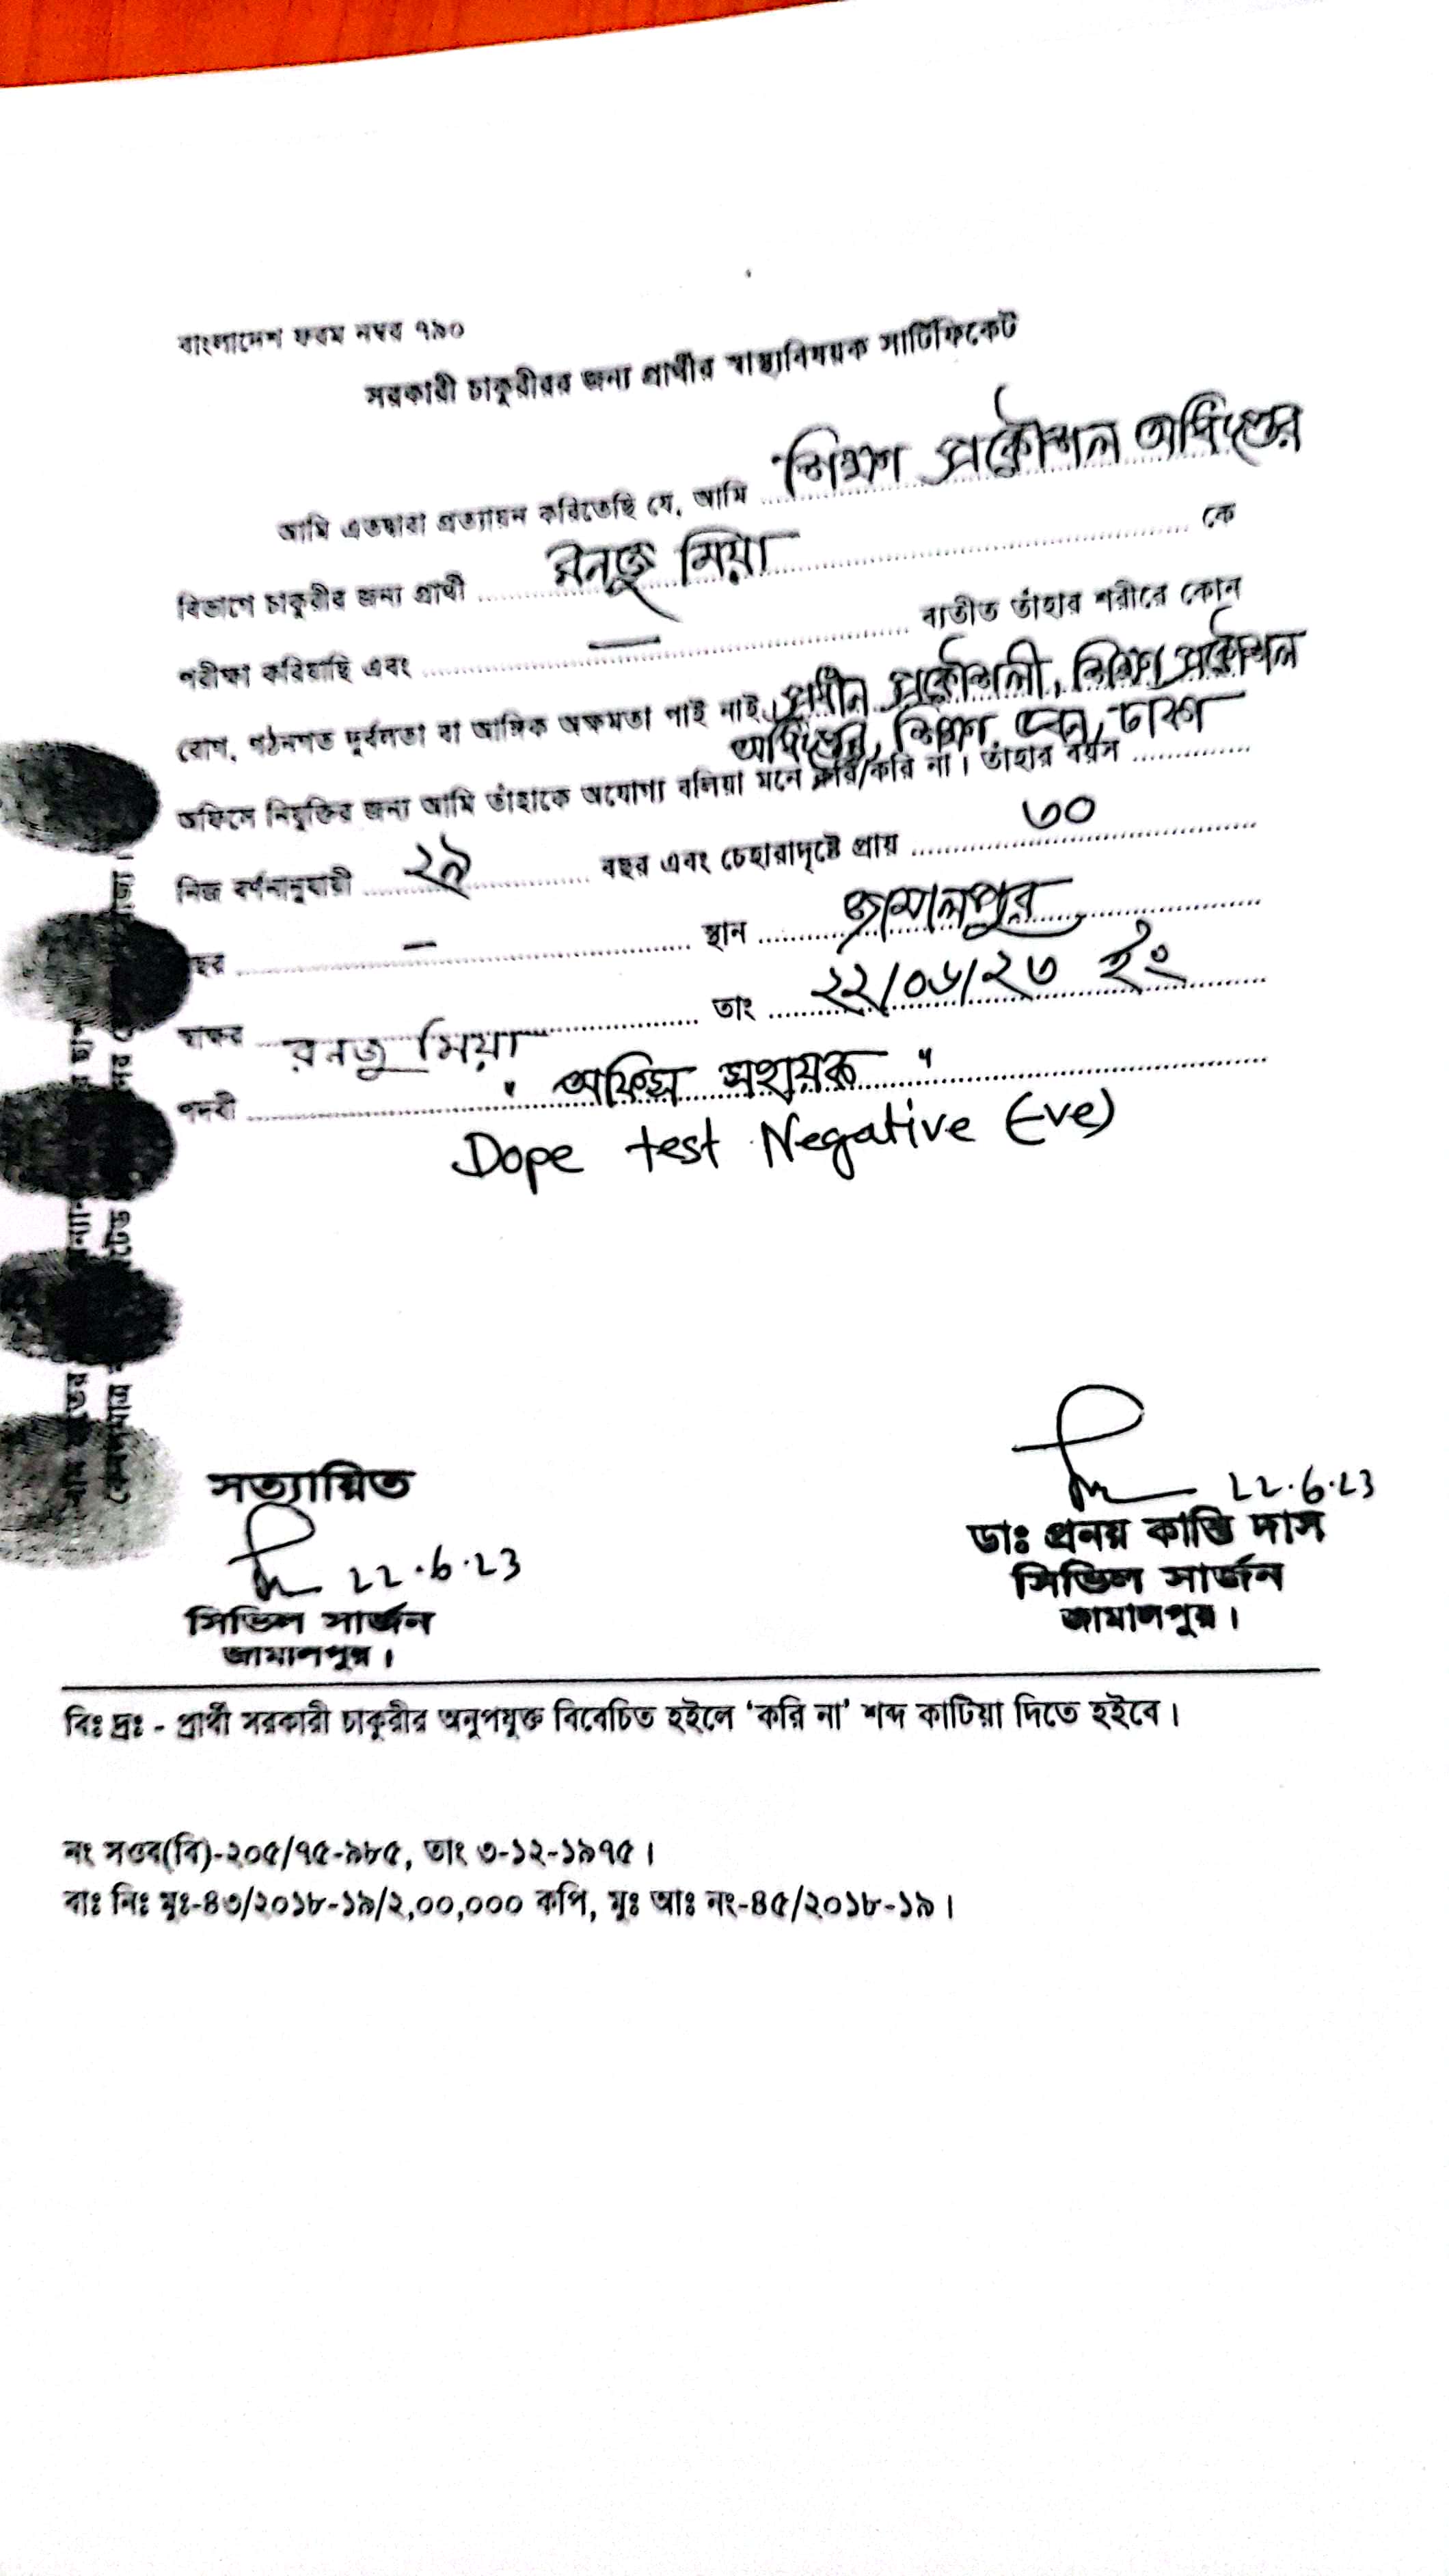 বাংলাদেশ ফরম নম্বর ৭৯০
সরকারী চাকুরীরর জন্য প্রার্থীর স্বাস্থ্যবিষয়ক সার্টিফিকেট
আমি এতদ্বারা প্রত্যায়ন করিতেছি যে, আমি শিক্ষা প্রকৌশল অধিদপ্তর
বিভাগে চাকুরীর জন্য প্রার্থী রনজু মিয়া কে
পরীক্ষা করিয়াছি এবং — ব্যতীত তাঁহার শরীরে কোন
রোগ, গঠনগত দুর্বলতা বা আঙ্গিক অক্ষমতা পাই নাই। প্রধান প্রকৌশলী, শিক্ষা প্রকৌশল
অধিদপ্তর, শিক্ষা ভবন, ঢাকা
অফিসে নিযুক্তির জন্য আমি তাঁহাকে অযোগ্য বলিয়া মনে করি/করি না। তাঁহার বয়স
নিজ বর্ণনানুযায়ী ২৯ বছর এবং চেহারাদৃষ্টে প্রায় ৩০
বছর — স্থান জামালপুর
স্বাক্ষর রনজু মিয়া তাং ২২/০৬/২৩ ইং
পদবী " অফিস সহায়ক "
Dope test Negative (-ve)
22.6.23
ডাঃ প্রনয় কান্তি দাস
সিভিল সার্জন
জামালপুর।
সত্যায়িত
22.6.23
সিভিল সার্জন
জামালপুর।
বিঃ দ্রঃ - প্রার্থী সরকারী চাকুরীর অনুপযুক্ত বিবেচিত হইলে ‘করি না’ শব্দ কাটিয়া দিতে হইবে।
নং সওব(বি)-২০৫/৭৫-৯৮৫, তাং ৩-১২-১৯৭৫।
বাঃ নিঃ মুঃ-৪৩/২০১৮-১৯/২,০০,০০০ কপি, মুঃ আঃ নং-৪৫/২০১৮-১৯।